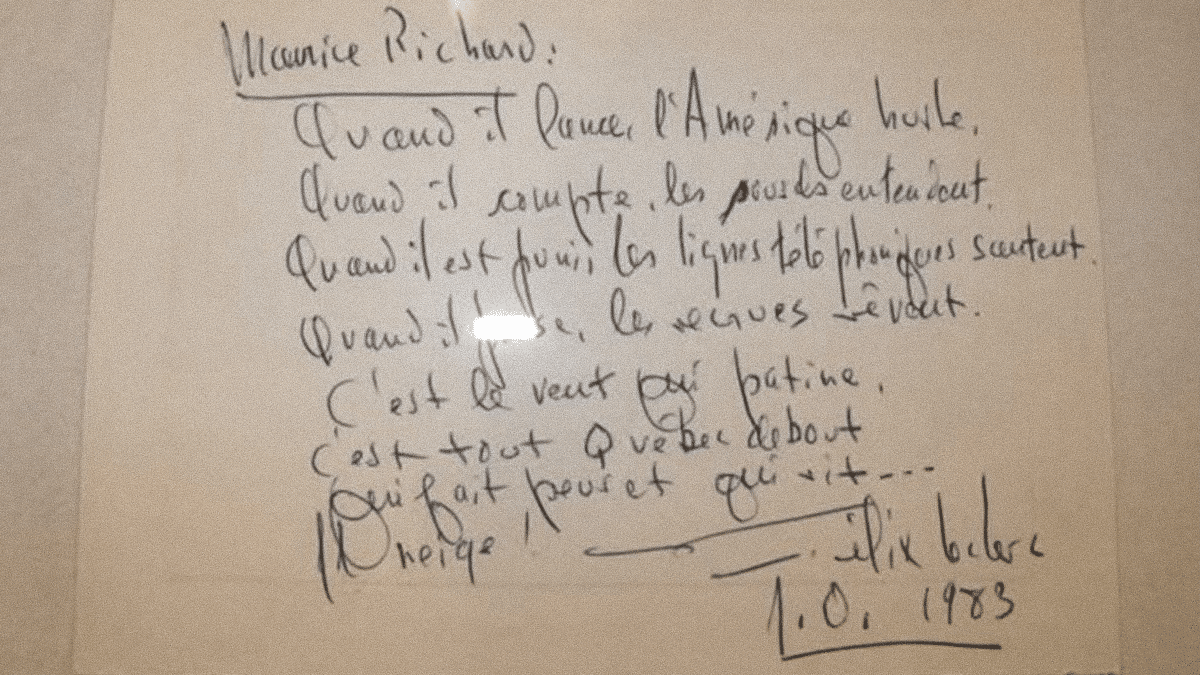 Maurice Richard :
Quand il lance, l'Amérique hurle.
Quand il compte, les sourds entendent.
Quand il est puni, les lignes téléphoniques sautent.
Quand il les recrues rêvent.
C'est le vent qui patine.
C'est tout Québec debout
Qui fait peur et qui vit...
Il neige !
Félix Leclerc
I.O. 1983